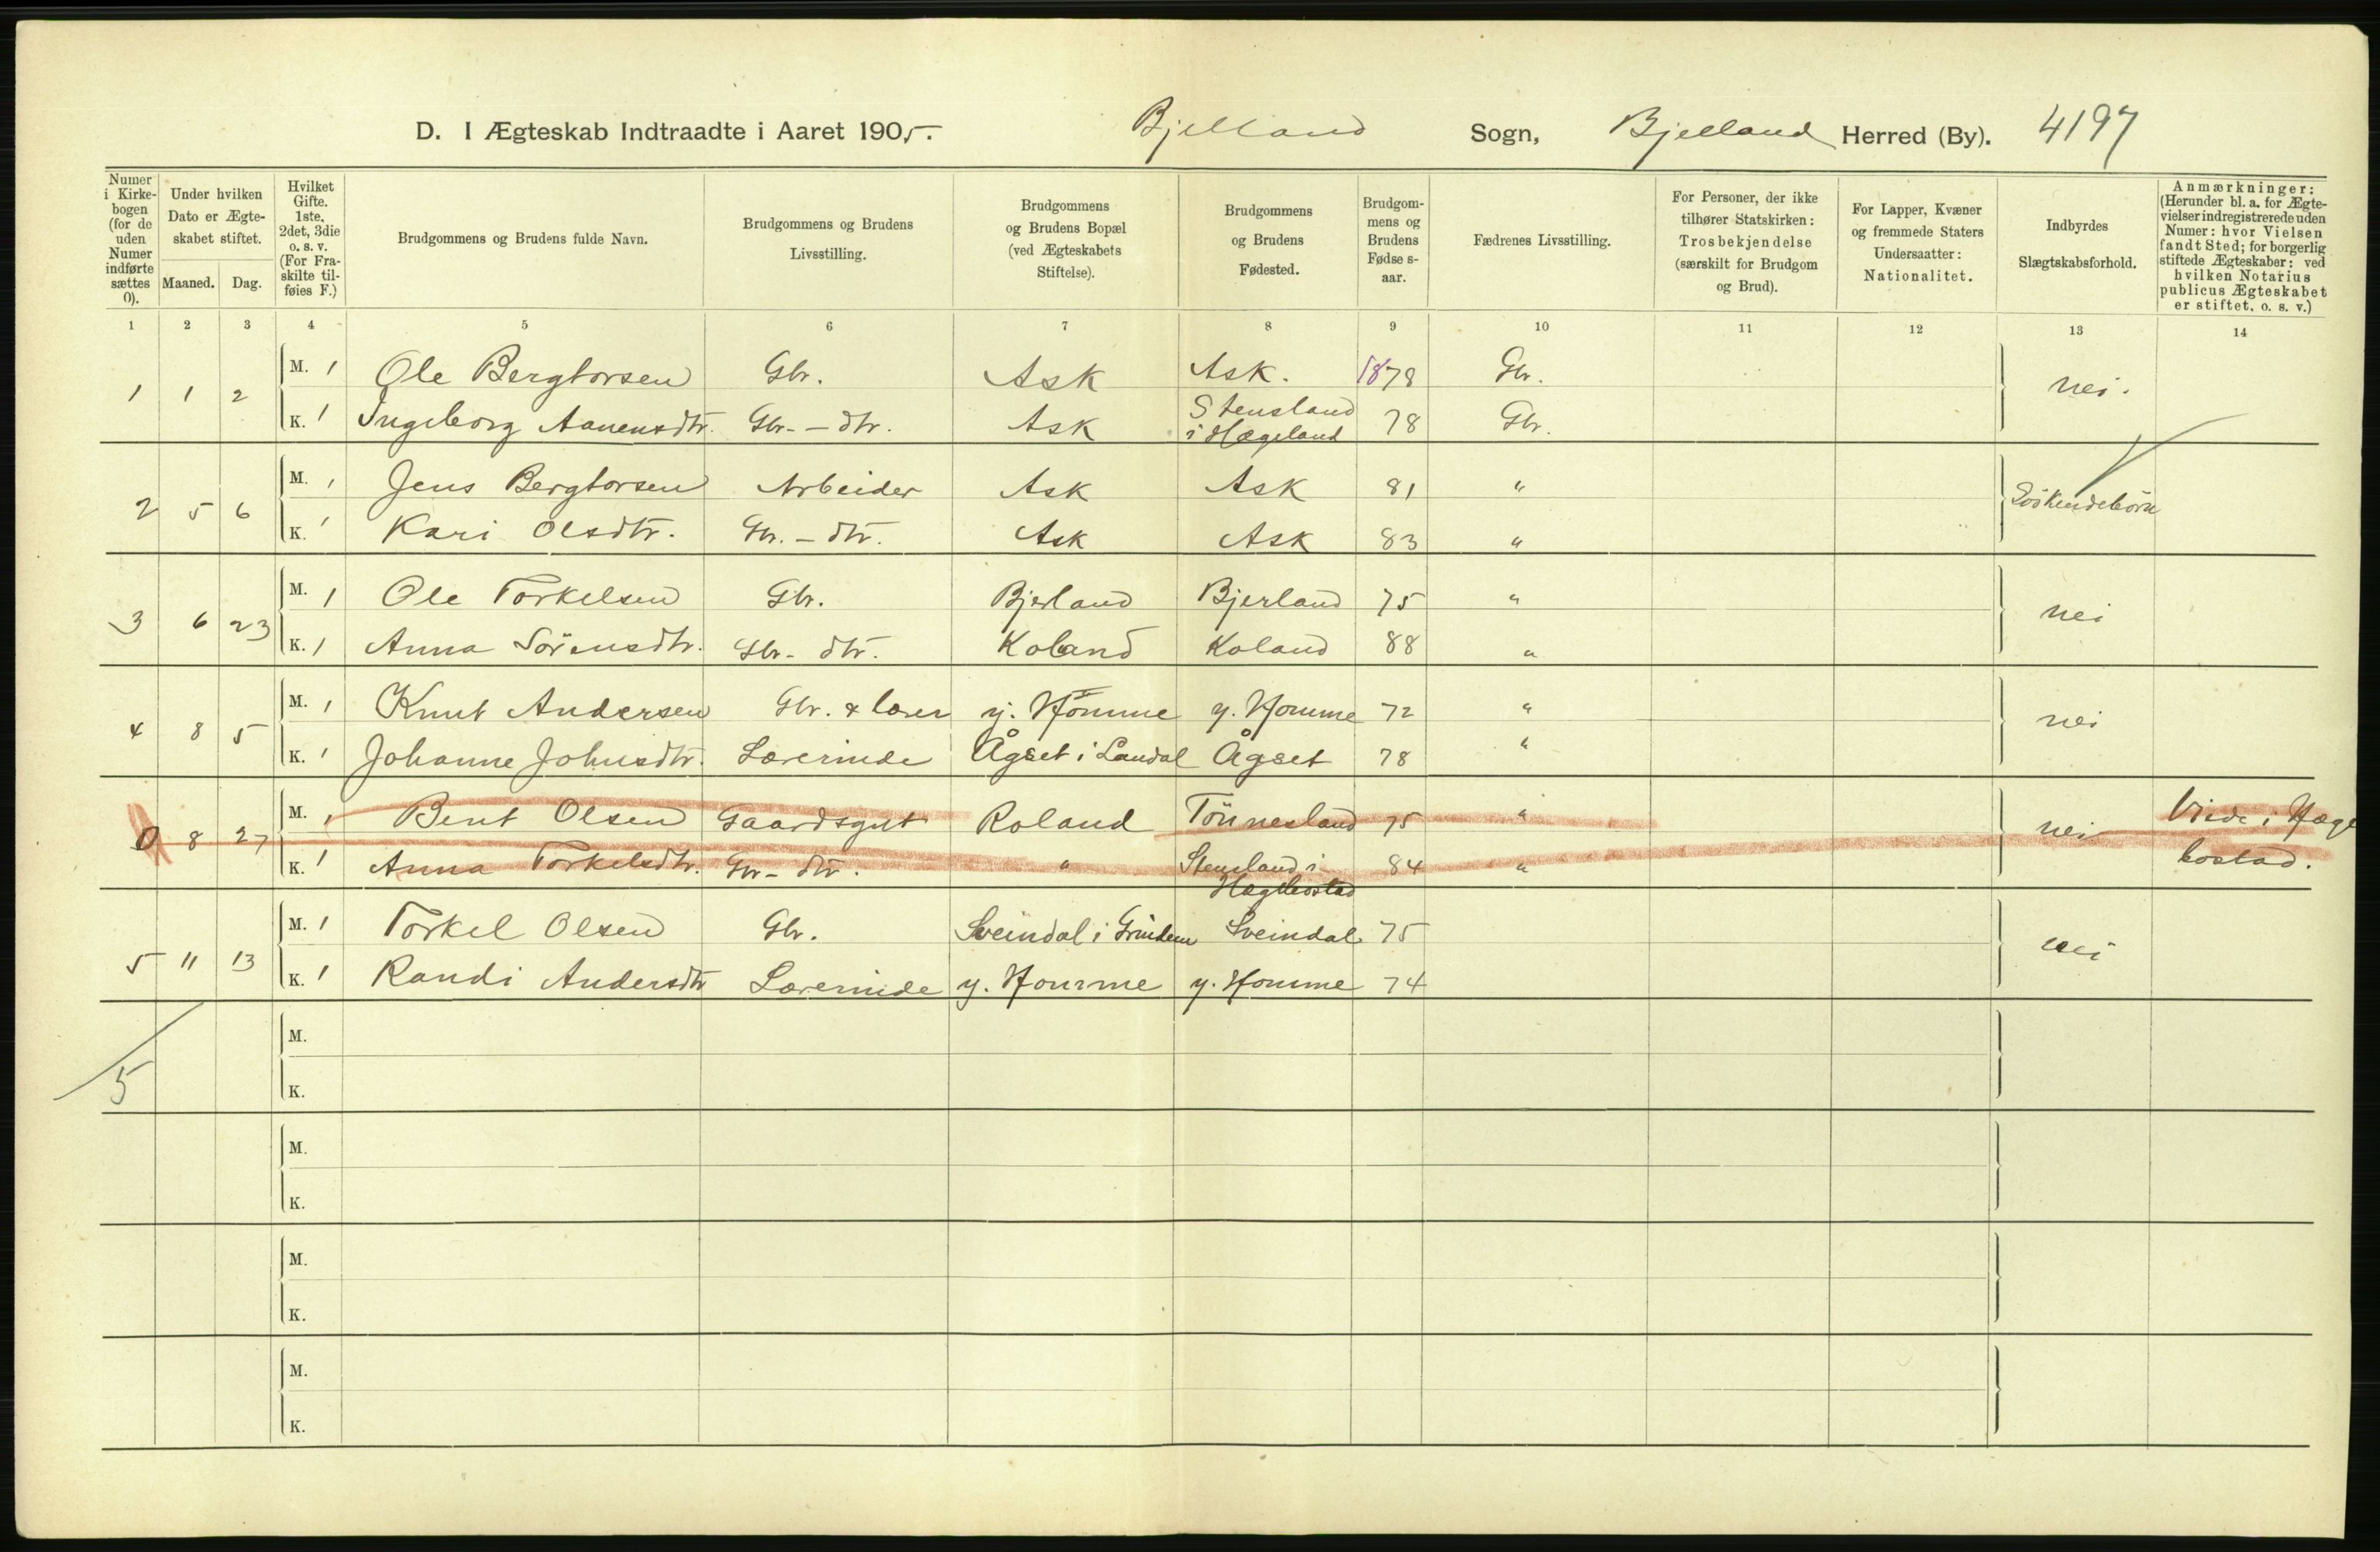 D. I Ægteskab Indtraadte i Aaret 1905. Bjelland Sogn, Bjelland Herred (By). 4197
Numer i Kirkebogen (for de uden Numer indførte sættes 0).
Under hvilken Dato er Ægteskabet stiftet.
Maaned. Dag.
Hvilket Gifte. 1ste, 2det, 3die o. s. v. (For Fraskilte tilføies F.)
Brudgommens og Brudens fulde Navn.
Brudgommens og Brudens Livsstilling.
Brudgommens og Brudens Bopæl (ved Ægteskabets Stiftelse).
Brudgommens og Brudens Fødested.
Brudgommens og Brudens Fødse s-aar.
Fædrenes Livsstilling.
For Personer, der ikke tilhører Statskirken: Trosbekjendelse (særskilt for Brudgom og Brud).
For Lapper, Kvæner og fremmede Staters Undersaatter: Nationalitet.
Indbyrdes Slægtskabsforhold.
Anmærkninger: (Herunder bl. a. for Ægtevielser indregistrerede uden Numer: hvor Vielsen fandt Sted; for borgerlig stiftede Ægteskaber: ved hvilken Notarius publicus Ægteskabet er stiftet, o. s. v.)
1 2 3 4 5 6 7 8 9 10 11 12 13 14
1 1 2 M. 1 Ole Bergtorsen Gbr. Ask Ask. 1878 Gbr. nei.
K. 1 Ingeborg Aanensdtr. Gbr. - dtr. Ask Stensland i Hægeland 78 Gbr.
2 5 6 M. 1 Jens Bergtorsen Arbeider Ask Ask 81 " Söskendebörn
K. 1 Kari Olsdtr. Gbr. - dtr. Ask Ask 83 "
3 6 23 M. 1 Ole Torkelsen Gbr. Bjerland Bjerland 75 " nei
K. 1 Anna Sörensdtr. Gbr - dtr. Koland Koland 88 "
4 8 5 M. 1 Knut Andersen Gbr. & lærer y. Homme y. Homme 72 " nei
K. 1 Johanne Johnsdtr. Lærerinde Ågset i Laudal Ågset 78 "
0 8 27 M. 1 Bent Olsen Gaardsgut Roland Tönnesland 75 " nei Viede i Hæge
K. 1 Anna Torkelsdtr. Gbr - dtr. " Stensland i Hægebostad 84 " bostad.
5 11 13 M. 1 Torkel Olsen Gbr. Sveindal i Grindem Sveindal 75 nei
K. 1 Randi Andersdtr Lærerinde y. Homme y. Homme 74
M.
5
K.
M.
K.
M.
K.
M.
K.